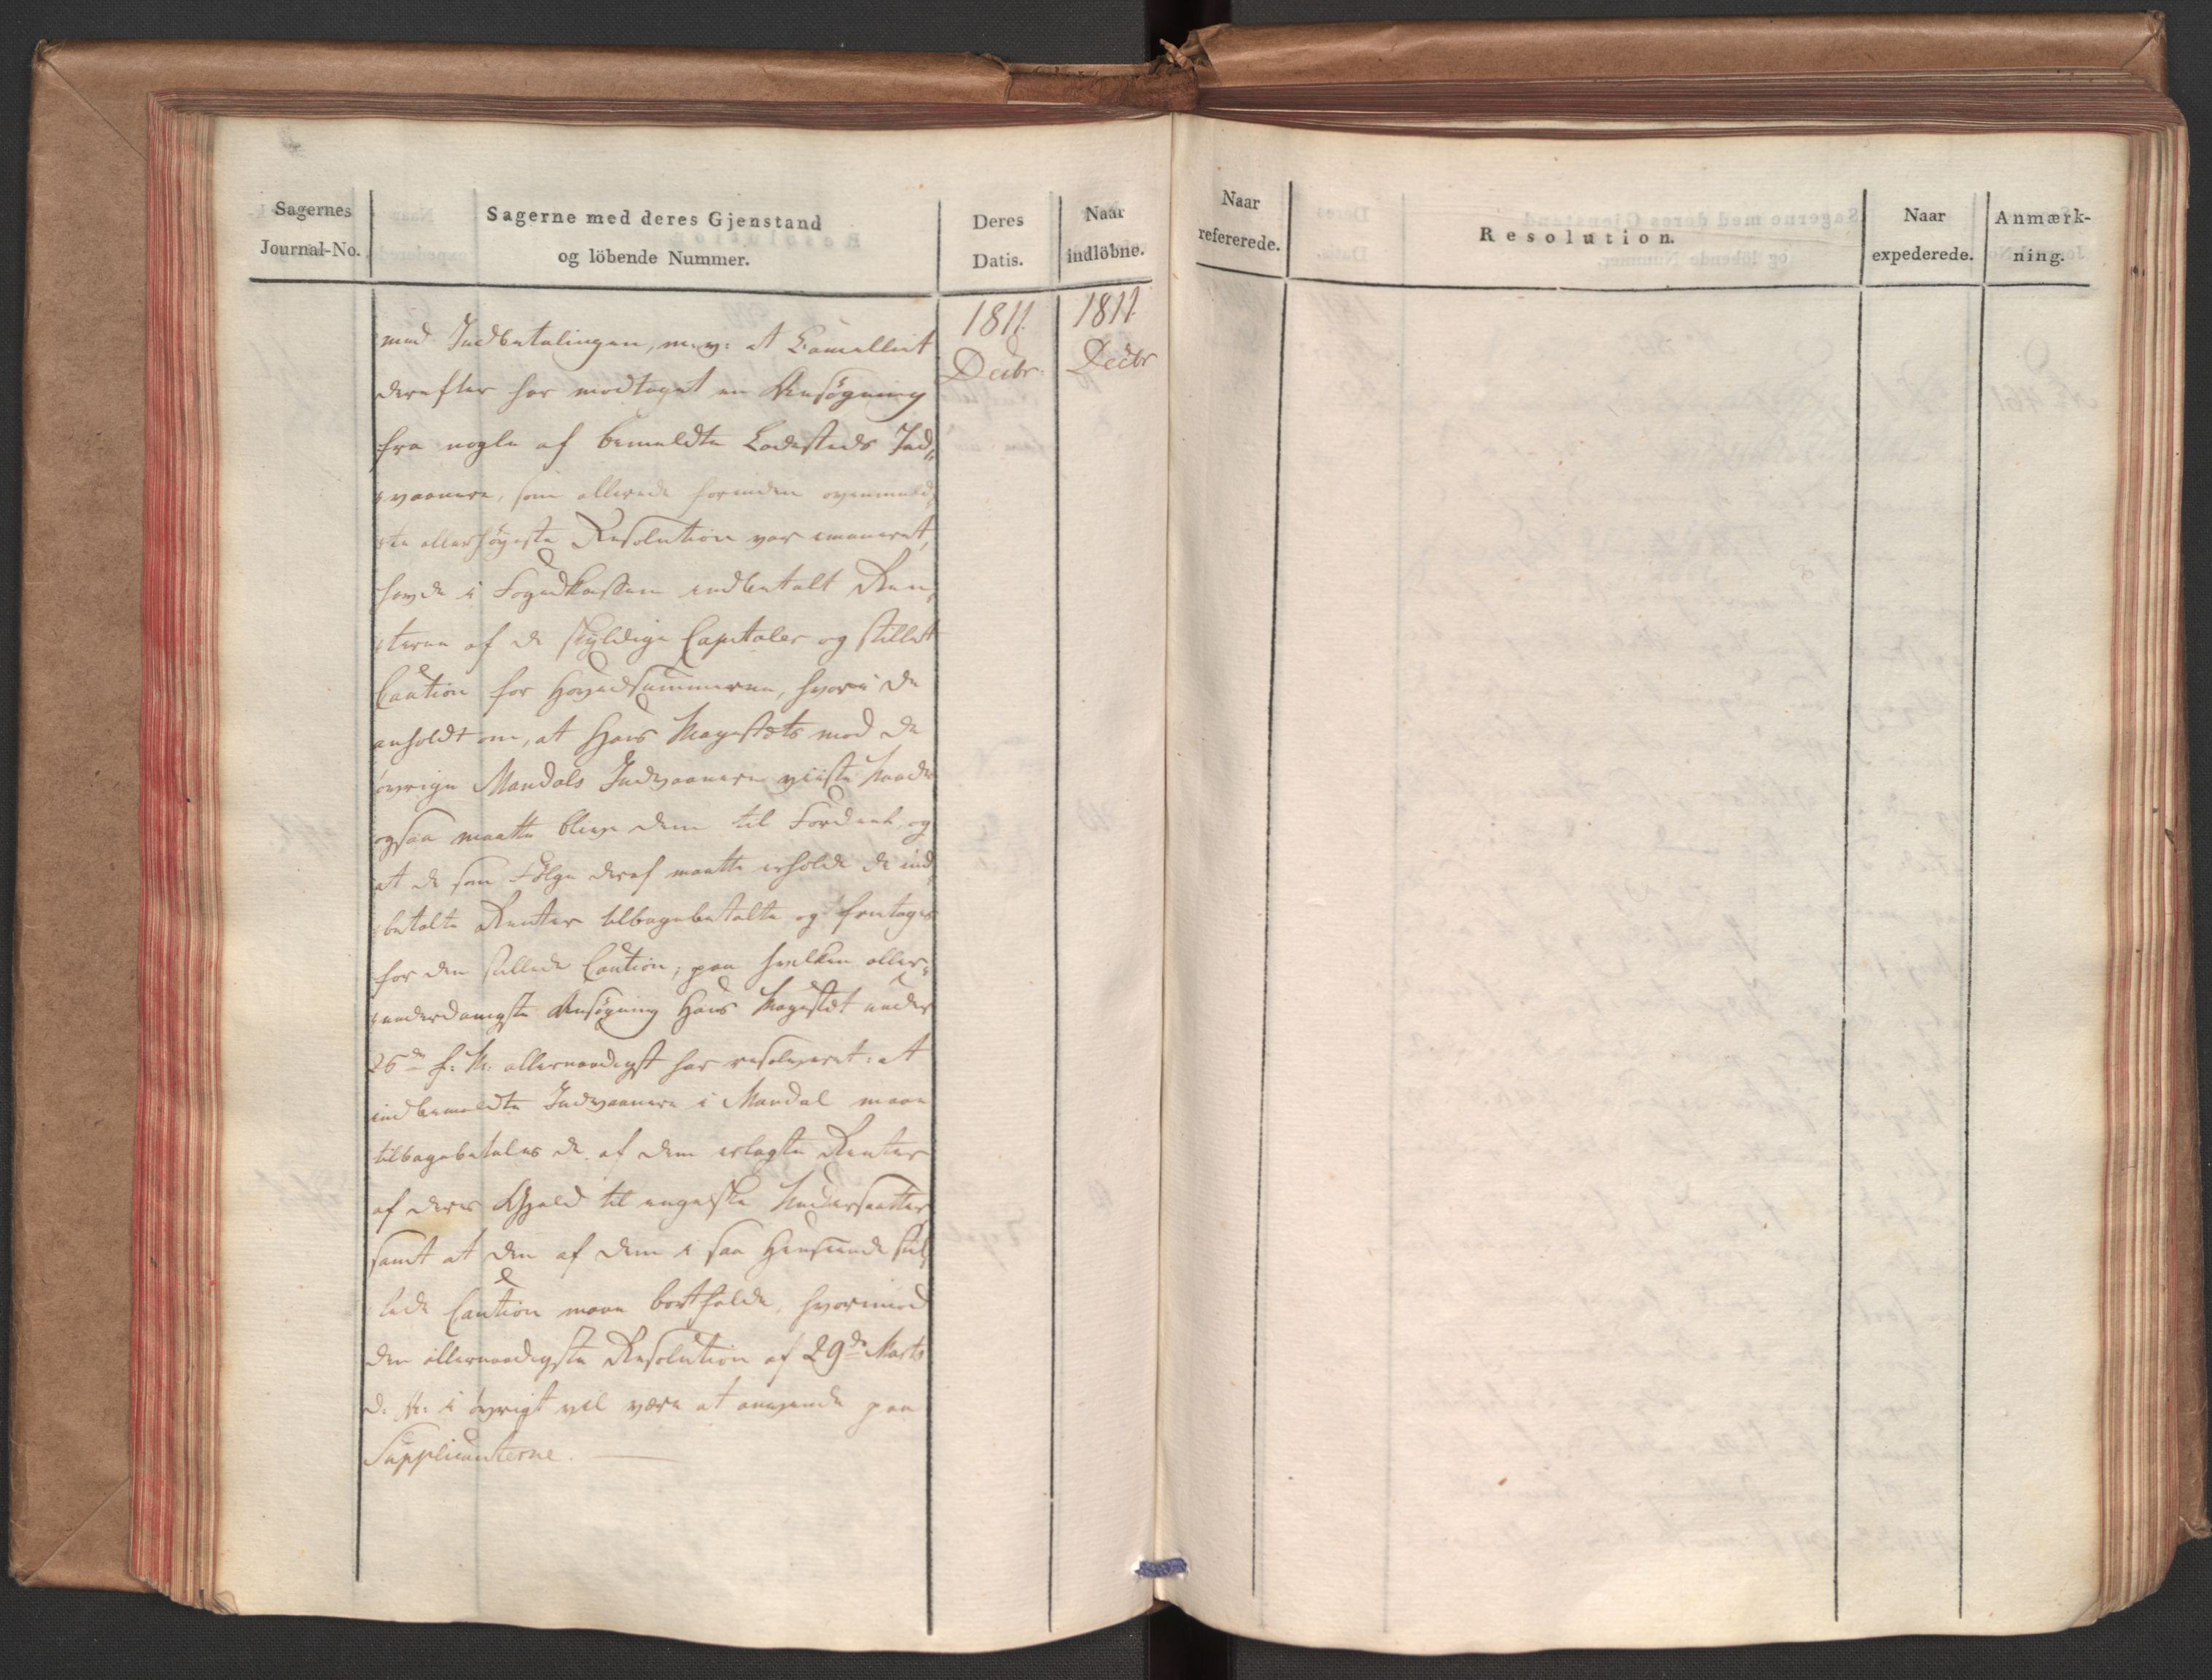 Sagernes
Journal-No.
Sagerne med deres Gjenstand
og löbende Nummer.
Deres
Datis.
Naar
indlöbne.
Naar
refererede.
Resolution.
Naar
expederede.
Anmærk-
ning.
1811.
Decbr.
1811.
Decbr
med Indbetalingen, m: v: at Cancelliet
derefter har modtaget en Ansøgning
fra nogle af bemeldte Ladesteds Ind„
„vaanere, som allerede forinden ovenmeld„
„te allerhøyeste Resolution var emaneret,
havde i Fogedkassen indbetalt Ren„
„terne af de skyldige Capitaler og stillet
Caution for Hovedsummerne, hvori de
anholdt om, at Hans Majestæts mod de
øvrige Mandals Indvaanere viiste Naade
ogsaa maatte blive dem til Fordeel, og
at de som Følge deraf maatte erholde de ind„
„betalte Renter tilbagebetalte og fritages
for den stillede Caution; paa hvilken aller„
„underdanigste Ansøgning Hans Majestæt under
26de f: M: allernaadigst har resolveret: at
indbemeldte Indvaanere i Mandal maae
tilbagebetales de af dem erlagte Renter
af deres Gjeld til engelske Undersaatter
samt at den af dem i saa Henseende stil„
„lede Caution maae bortfalde, hvorimod
den allernaadigste Resolution af 29de Marts
d. A: i øvrigt vil være at anvende paa
Supplicanterne.